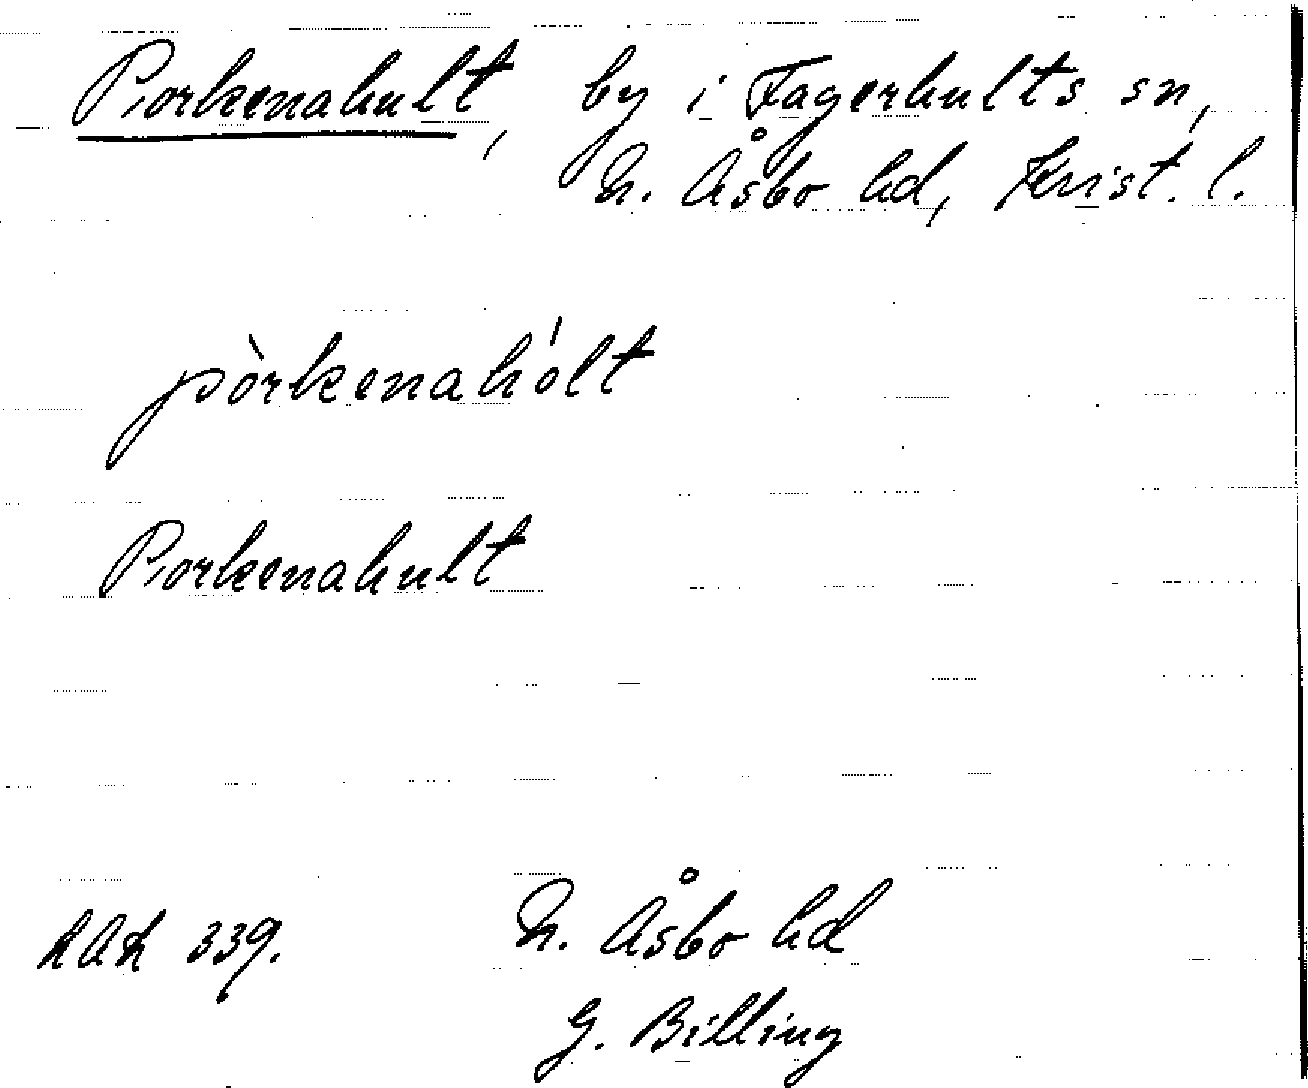 Porkenahult, by i Fagerhults sn,
N. Åsbo hd, Krist. l.
pòrkenahólt
Porkenahult
339.
N. Åsbo hd
G. Billing